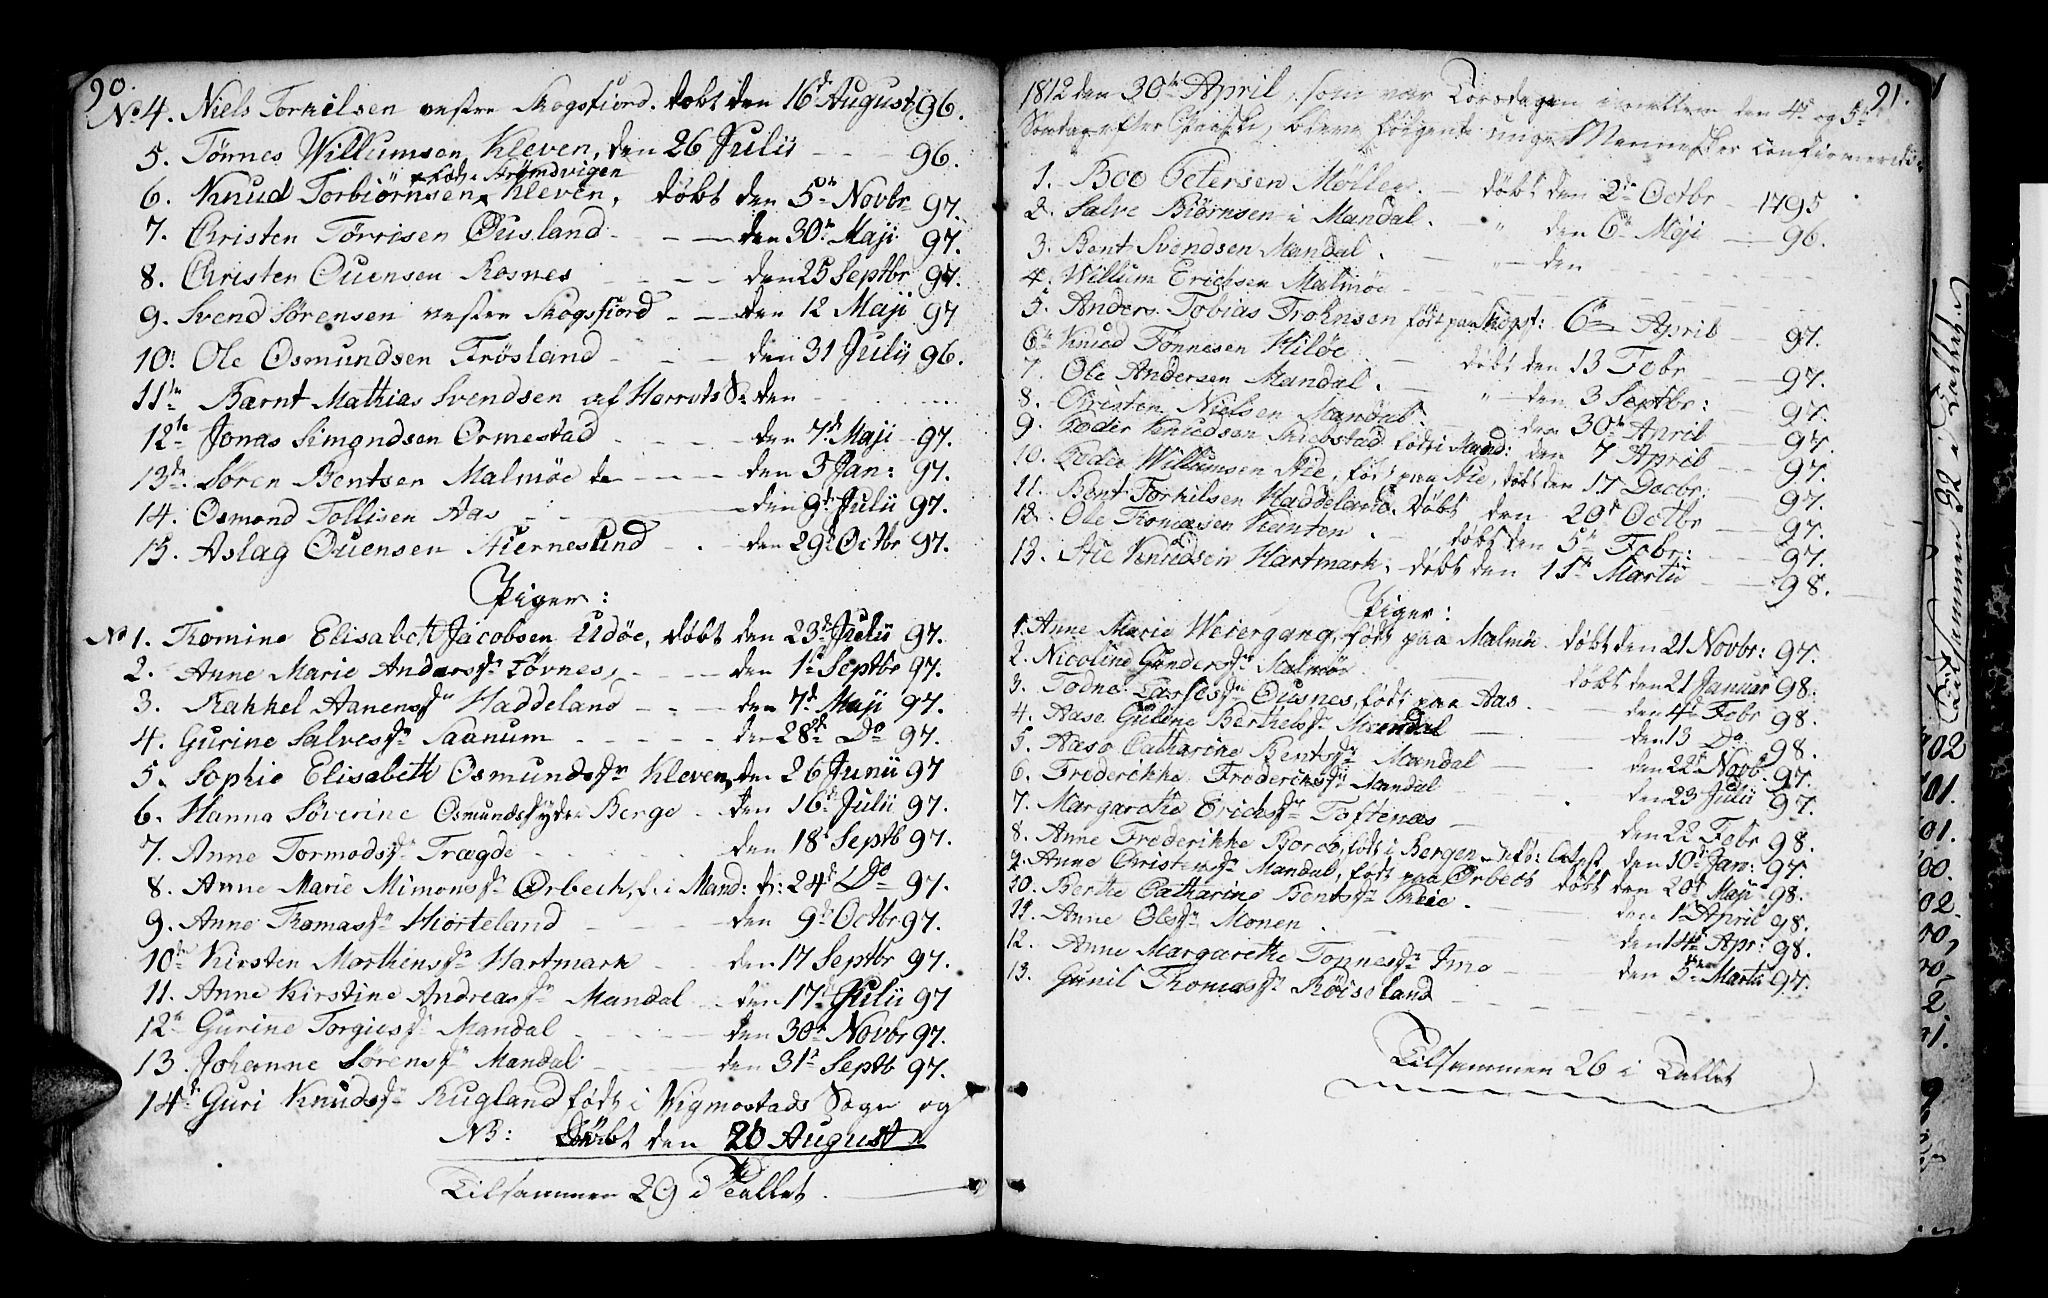 90.
No 4. Niels Torkilsen vestre Skogsfiord. døbt den 16d August 96.
5. Tønnes Willumsen Kleven, den 26 Julii - - 96.
født i Strømdvigen
6. Knud Torbiørnsen Kleven, døbt den 5te Novbr 97.
7. Christen Tørrisen Øusland - - - den 30te Maji 97.
8. Christen Ouensen Rosnes - - - - den 25 Septbr 97.
9. Svend Sørensen vestre Skogsfiord - - den 12 Maji 97
10. Ole Osmundsen Frøsland - - - den 31 Julii 96.
11te Bærnt Mathias Svendsen af Harrets S: den - - - -
12te Jonas Simondsen Ormestad - - - den 7d Maji 97.
13de Søren Bentsen Malmøe - - - den 3 Jan: 97.
14. Osmond Tollisen Aas - - - den 9d Julii 97.
15. Aslag Ouensen Stierneslund - - den 29d Octbr 97.
Piger:
No 1. Tomine Elisabeth Jacobsen Udøe, døbt den 23d Julii 97.
2. Anne Marie Andersdr Løvnes, - - - den 1te Septbr 97.
3. Rakkel Aanensdr Haddeland - - - den 7d Maji 97.
4. Gurine Salvesdr Saanum - - - - den 28de Do 97.
5. Sophie Elisabeth Osmundsdr Kleven, den 26 Junii 97
6. Hanna Søverine Osmundsdr Berge - den 16d Julii 97.
7. Anne Tormodsdr Trægde - - - den 18d Septb 97.
8. Anne Marie Simonsdr Ørbech, f. i Mand: d: 24d Do 97.
9. Anne Tomasdr Hiorteland - - - den 9d Octbr 97.
10de Kirsten Morthensdr Hartmark - - den 17 Septbr 97.
11. Anne Kirstine Andreasdr Mandal - - den 17d Julii 97
12te Gurine Torgiesdr Mandal - - - den 30te Novbr 97.
13. Johanne Sørensdr Mandal - - - den 31te Septb 97.
14de Guri Knudsdr Rugland født i Vigmostads Sogn og
NB: Døbt den 20 August
Tilsammen 29 i Tallet.
91.
1812 den 30te April, som var Torsdagen imellem den 4de og 5te
Søndag efter Paaske, bleve følgende unge Mennesker confirmerede:
1. Boo Petersen Møller. - døbt den 2de Octbr - 1795
2. Salve Biørnsen i Mandal. - " den 6te Maji - 96.
3. Bent Svendsen Mandal. - " den
4. Willum Erichsen Malmøe - - - -
5. Anders Tobias Trohnsen født paa Skogsf: 6te April - 97.
6te Knud Tønnesen Hiløe - døbt den 13 Febr - 97.
7. Ole Andersen Mandal. - " den 3 Septbr: - 97.
8. Christen Nielsen - den 30te April - 97.
9. Peder Knudsen Skiebstad født i Mand: den 7 April - 97.
10. Peder Willumsen Stie, født paa Stie, døbt den 17 Decbr: 97.
11. Bent Torkilsen Haddeland. døbt den 20d Octbr - 97.
12. Ole Tomesen Kanten. - døbt den 5te Febr: - 97.
13. Stie Knudsen Hartmark, døbt den 15te Martii - 98.
Piger:
1. Anne Marie Weiergang, født paa Malmøe døbt den 21 Novbr: 97.
2. Nicoline Gundersdr Malmøe - døbt den 21 Januar 98.
3. Todne Lassesdr Ousnes, født paa Aas. - den 4de Febr 98.
4. Aase Guline Berthelsdr Mandal - den 13 Do 98.
5. Aase Catharine Bentsdr Mandal - den 22d Novb. 97.
6. Frederikke Frederiksdr Mandal - den 23 Julii 97.
7. Margarethe Erichsdr Toftenæs - den 22 Febr 98.
8. Anne Frederikke Boroe, født i Bergen den 10de Jan: 97.
9. Anne Christensdr Mandal, født paa Ørbech døbt den 20d Maji 98.
10. Berthe Catharine Bentsdr - den 1 April 98.
11. Anne Olesdr Monen - den 14de Apr: 98.
12. Anne Margarethe Tønnesdr Ime - den 5te Martii 97.
13. Gunil Tomasdr Røiseland - - - -
Tilsammen 26 i Tallet
Tilsammen 32 i Tallet